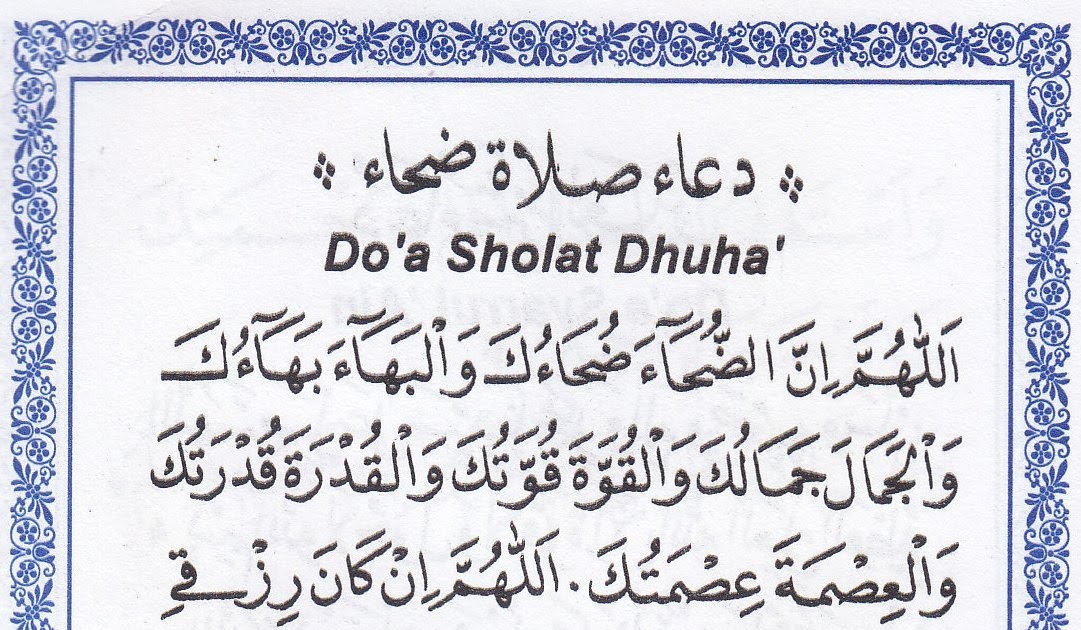 دعاء صلاة ضحاء
Do'a Sholat Dhuha'
اَللّٰهُمَّ اِنَّ الضُّحَآءَ ضُحَاءُكَ وَالْبَهَآءَ بَهَآءُكَ
وَالْجَمَالَ جَمَالُكَ وَالْقُوَّةَ قُوَّتُكَ وَالْقُدْرَةَ قُدْرَتُكَ
وَالْعِصْمَةَ عِصْمَتُكَ . اَللّٰهُمَّ اِنْ كَانَ رِزْقِي